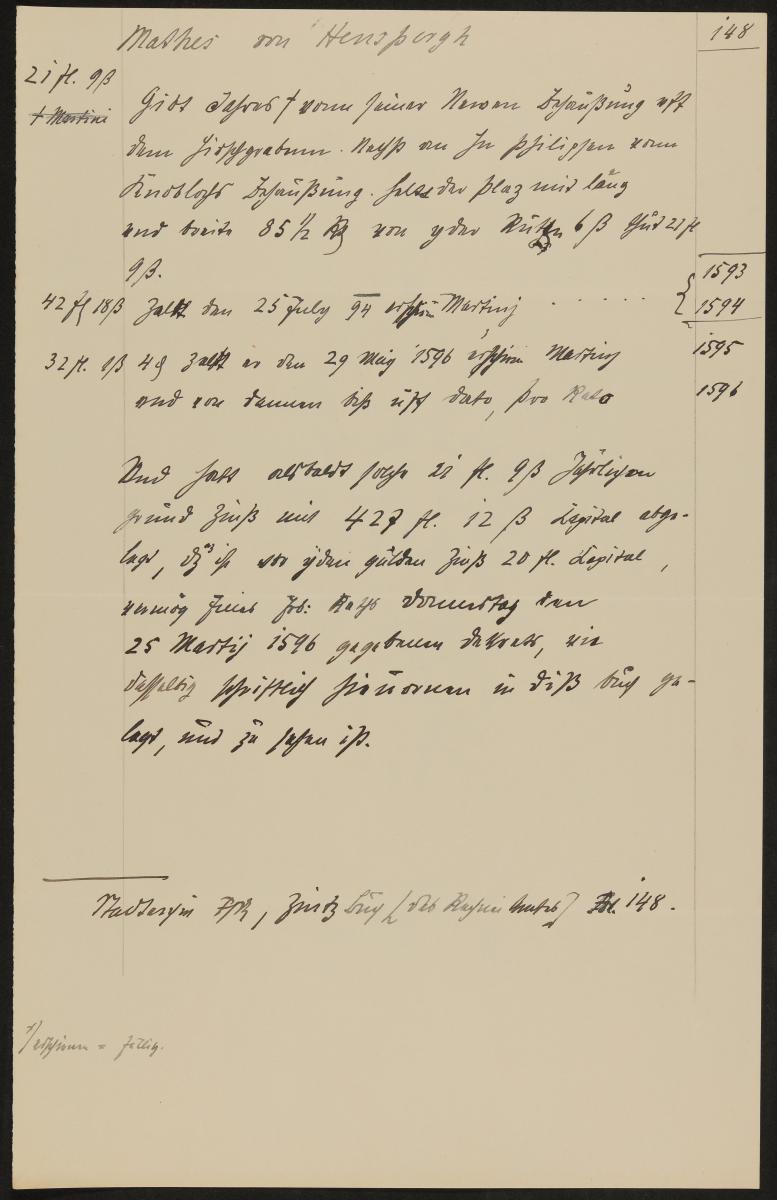 148
Mathes von Hensbergh
21 fl. 9 ß
† Martini
Gibt Jahrs † vonn seiner Newen Behaußung uff
dem Hirschgraben. Nechst an Jr Philipsen vonn
Knoblochs Behaußung. helt der plaz mit läng
und breite 85 1/2 von yder Rutten 6 ß thut 21 fl
9 ß.
1593
42 fl 18 ß zalt den 25 July 94 erschin Martinj . . . . . .
1594
32 fl. 1 ß 4 zalt er den 29 May 1596 erschinn Martinj
1595
und von dannen biß uff dato, pro Rato
1596
Und hatt alsbaldt solche 21 fl. 9 ß Jährlichen
grund Zinß mit 427 fl. 12 ß Capital abge-
legt, dz ist vor yden gülden Zinß 20 fl. Capital,
vermög Eines Erb: Raths Donnerstag den
25 Martij 1596 gegebenen Dekrets, wie
dasselbig schriftlich hievornen in diß buch ge-
legt, und zu sehen ist.
Stadtarchiv Ffm, Zinsbuch [des Rechneiamtes] Fol. 148.
*) erschinen = fällig.